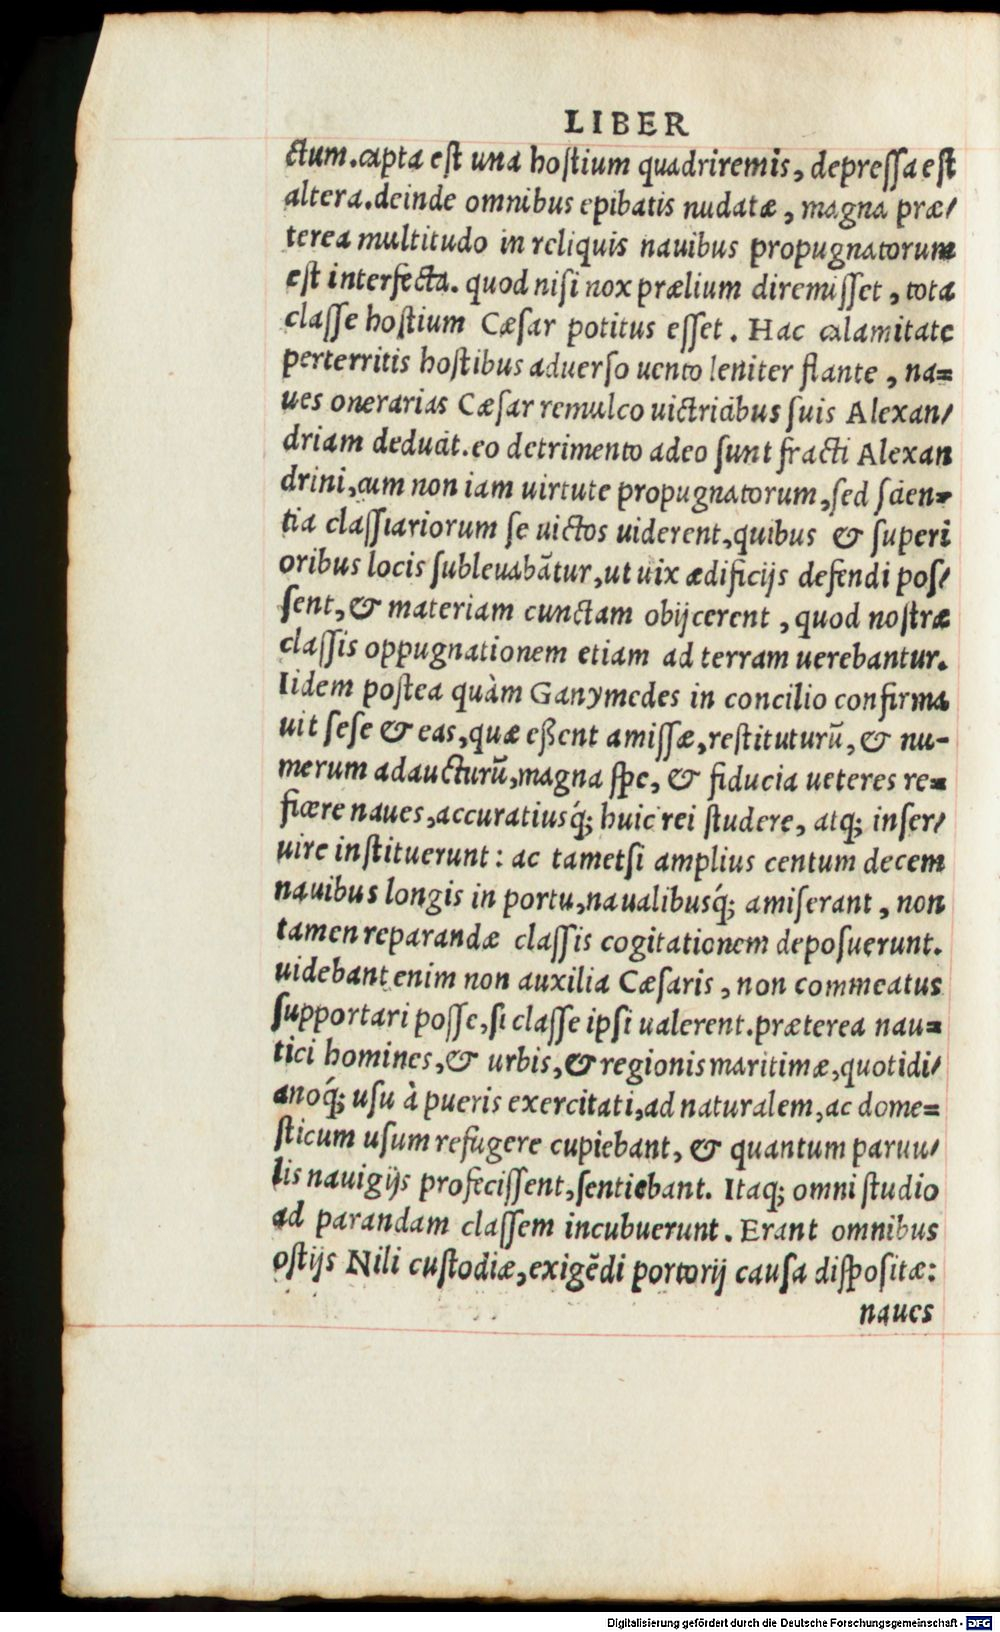 LIBER
ctum.capta est una hostium quadriremis, depressa est
altera.deinde omnibus epibatis nudatæ, magna præ/
terea multitudo in reliquis nauibus propugnatorum
est interfecta. quod nisi nox prælium diremisset, tota
classe hostium Cæsar potitus esset. Hac calamitate
perterritis hostibus aduerso uento leniter flante, na=
ues onerarias Cæsar remulco uictricibus suis Alexan/
driam deducit.eo detrimento adeo sunt fracti Alexan
drini,cum non iam uirtute propugnatorum,sed scien=
tia classiariorum se uictos uiderent,quibus & superi
oribus locis subleuabãtur,ut uix ædificijs defendi pos/
sent,& materiam cunctam obijcerent, quod nostræ
classis oppugnationem etiam ad terram uerebantur.
Iidem postea quàm Ganymedes in concilio confirma
uit sese & eas,quæ eßent amissæ,restituturũ,& nu-
merum adaucturũ,magna spe, & fiducia ueteres re=
ficere naues,accuratiusq́; huic rei studere, atq; inser/
uire instituerunt: ac tametsi amplius centum decem
nauibus longis in portu,naualibusq́; amiserant, non
tamen reparandæ classis cogitationem deposuerunt.
uidebant enim non auxilia Cæsaris, non commeatus
supportari posse,si classe ipsi ualerent.præterea nau=
tici homines,& urbis,& regionis maritimæ,quotidi/
anoq́; usu à pueris exercitati,ad naturalem,ac dome=
sticum usum refugere cupiebant, & quantum paruu/
lis nauigijs profecissent,sentiebant. Itaq; omni studio
ad parandam classem incubuerunt. Erant omnibus
ostijs Nili custodiæ,exigẽdi portorij causa dispositæ:
naues
Digitalisierung gefördert durch die Deutsche Forschungsgemeinschaft - DFG